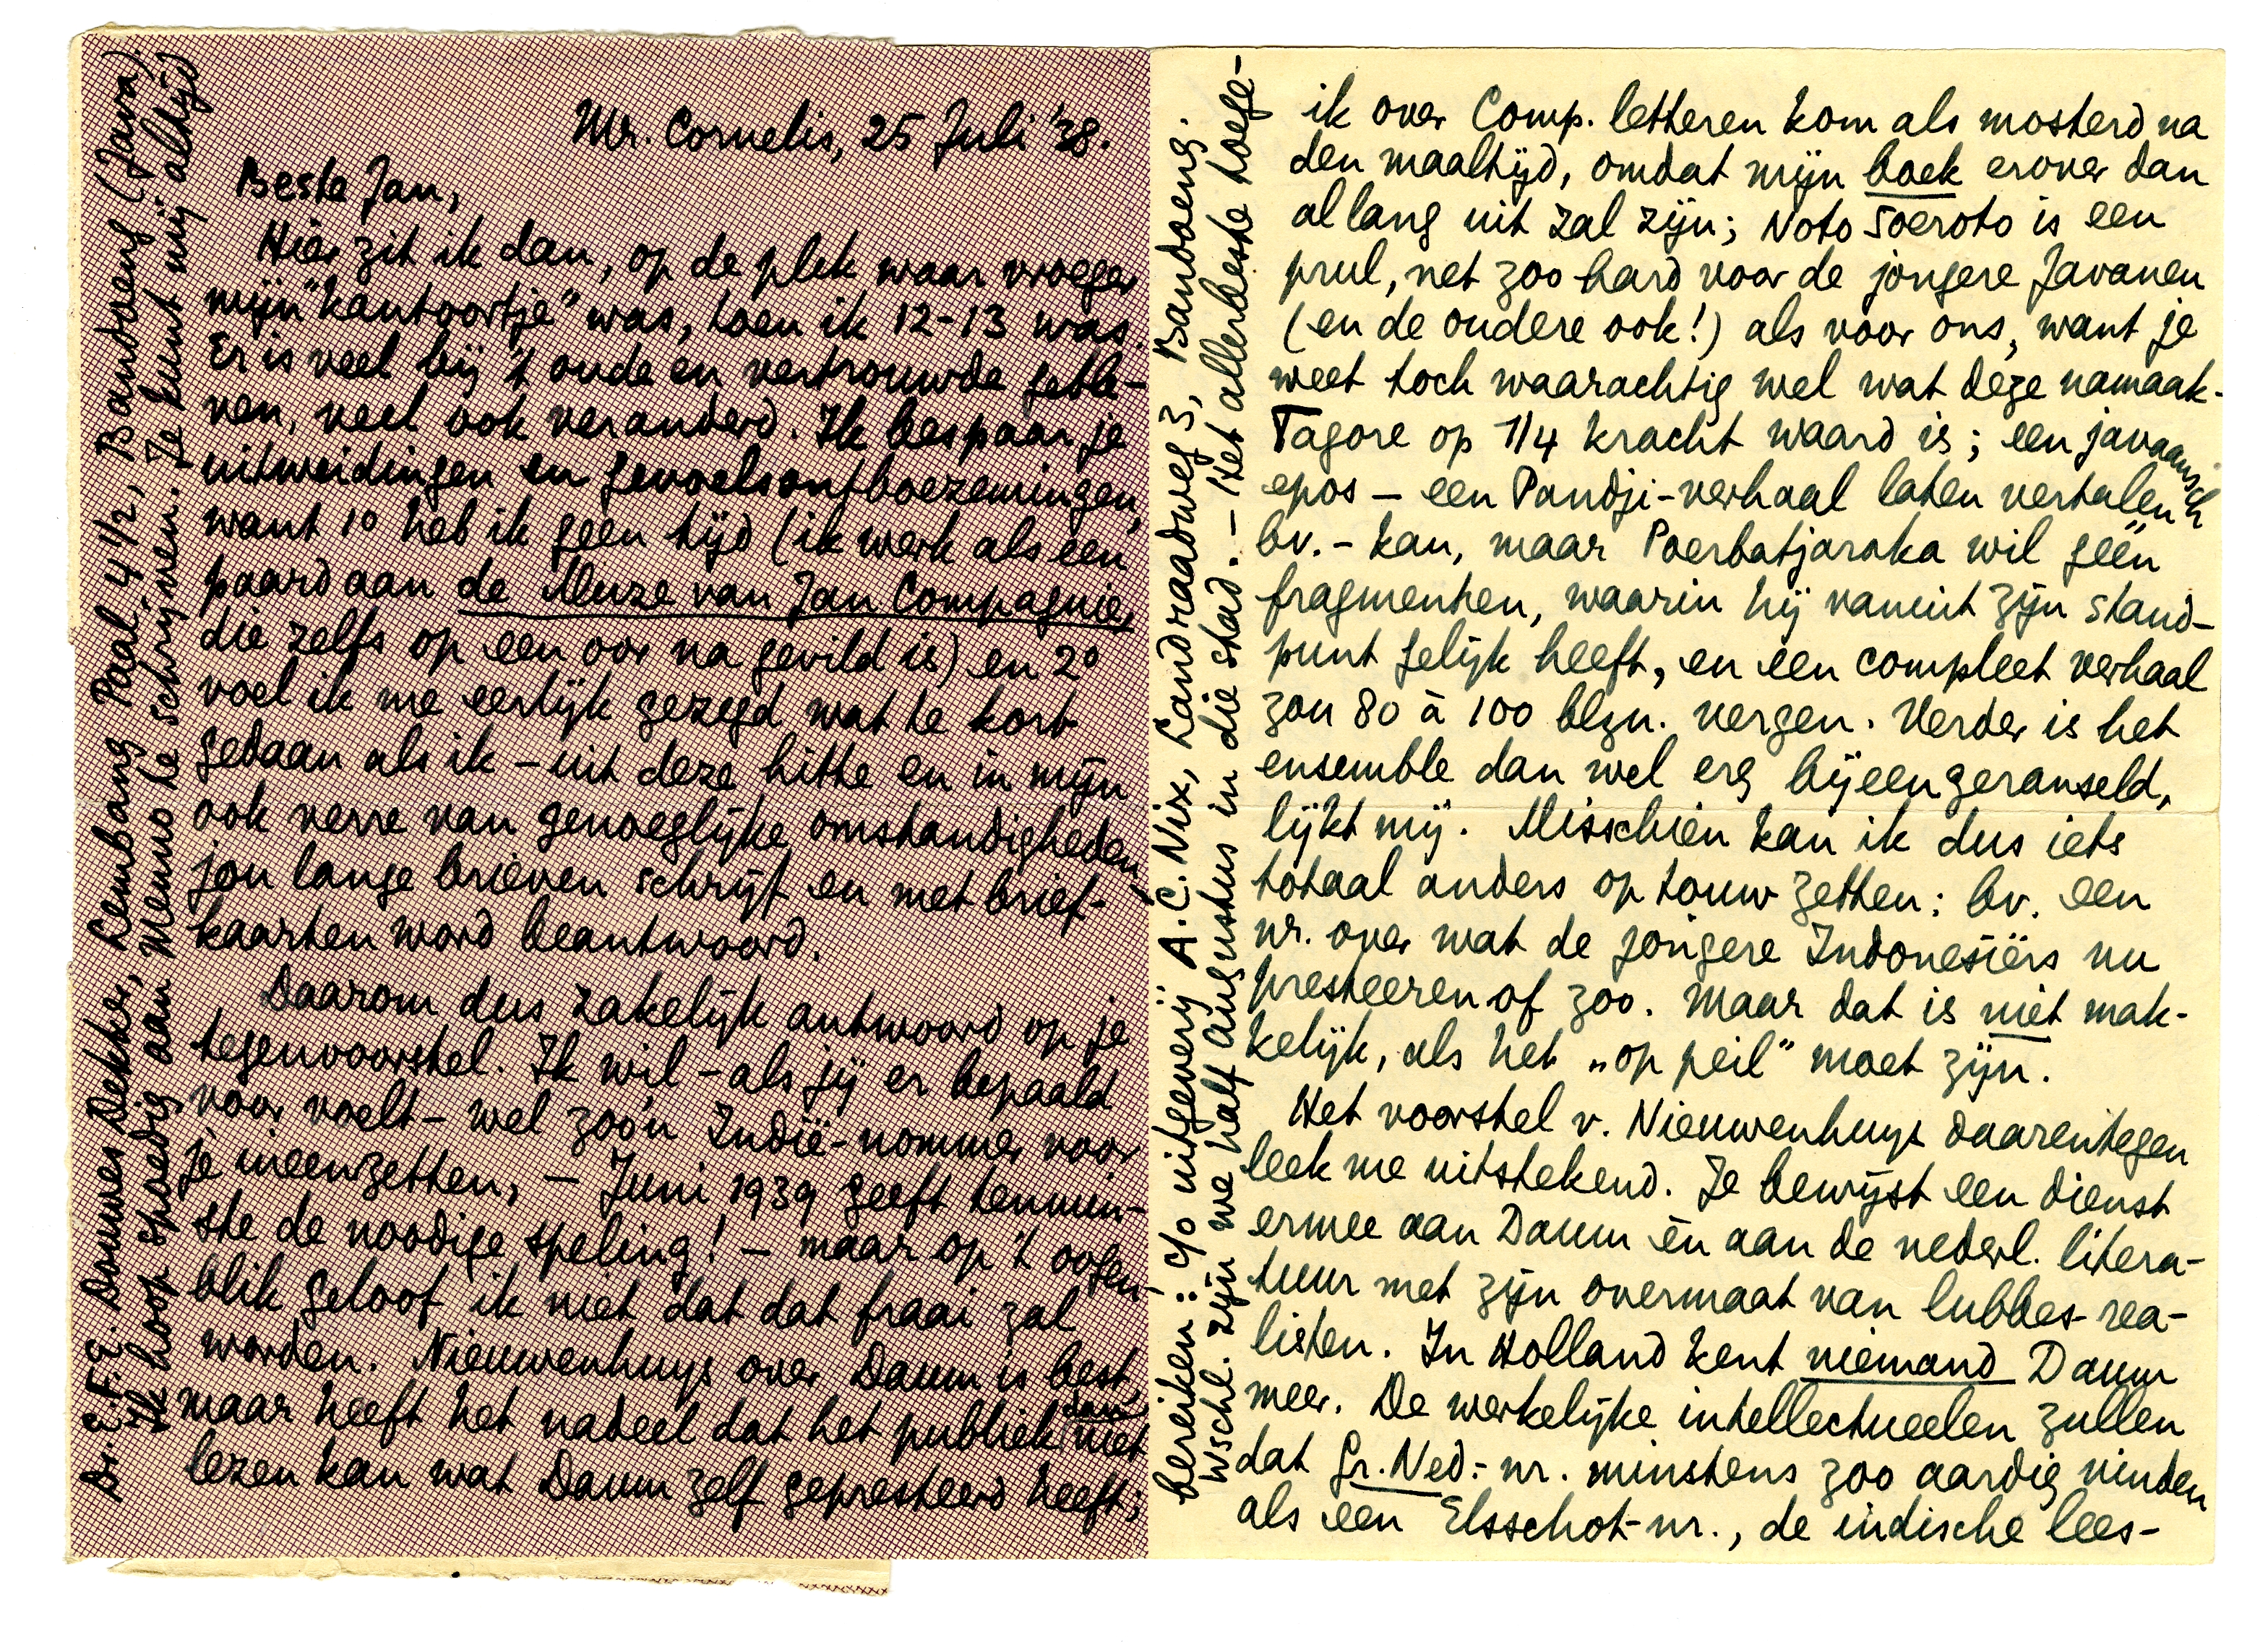 Mr. Cornelis, 25 Juli '38.
Beste Jan,
Hier zit ik dan, op de plek waar vroeger
mijn "kantoortje" was, toen ik 12-13 was.
Er is veel bij 't oude en vertrouwde geble-
ven, veel ook veranderd. Ik bespaar je
uitweidingen en gevoelsontboezemingen,
want 1° heb ik geen tijd (ik werk als een
paard aan de Muze van Jan Compagnie,
die zelfs op een oor na gevild is) en 2°
voel ik me eerlijk gezegd wat te kort
gedaan als ik – uit deze hitte en in mijn
ook verre van genoeglijke omstandigheden –
jou lange brieven schrijf en met brief-
kaarten word beantwoord.
Daarom dus zakelijk antwoord op je
tegenvoorstel. Ik wil – als jij er bepaald
voor voelt – wel zoo'n Indië-nommer voor
je ineenzetten, – Juni 1939 geeft tenmin-
ste de noodige speling! – maar op 't oogen-
blik geloof ik niet dat dat fraai zal
worden. Nieuwenhuys over Daum is best,
maar heeft het nadeel dat het publiek dan niet
lezen kan wat Daum zelf gepresteerd heeft;
Dr. E.F.E. Douwes Dekker, Lembang Paal 4 1/2, Bandoeng (Java).
Ik hoop spoedig aan Menno te schrijven. Je kunt mij altijd
ik over Comp. letteren kom als mosterd na
den maaltijd, omdat mijn boek erover dan
al lang uit zal zijn; Noto Soeroto is een
prul, net zoo hard voor de jongere Javanen
(en de oudere ook!) als voor ons, want je
weet toch waarachtig wel wat deze namaak-
Tagore op 1/4 kracht waard is; een javaansch
epos – een Pandji-verhaal laten vertalen
bv. – kan, maar Poerbatjaraka wil géén
fragmenten, waarin hij vanuit zijn stand-
punt gelijk heeft, en een compleet verhaal
zou 80 à 100 blzn. vergen. Verder is het
ensemble dan wel erg bijeengeranseld,
lijkt mij. Misschien kan ik dus iets
totaal anders op touw zetten: bv. een
nr. over wat de jongere Indonesiërs nu
presteeren of zoo. Maar dat is niet mak-
kelijk, als het „op peil" moet zijn.
Het voorstel v. Nieuwenhuys daarentegen
leek me uitstekend. Je bewijst een dienst
ermee aan Daum én aan de nederl. litera-
tuur met zijn overmaat van lubbes-rea-
listen. In Holland kent niemand Daum
meer. De werkelijke intellectueelen zullen
dat Gr. Ned.-nr. minstens zoo aardig vinden
als een Elsschot-nr., de indische lees-
bereiken: c/o uitgeverij A.C. Nix, Landraadweg 3, Bandoeng.
Wschl. zijn we half augustus in die stad. – Het allerbeste toege-